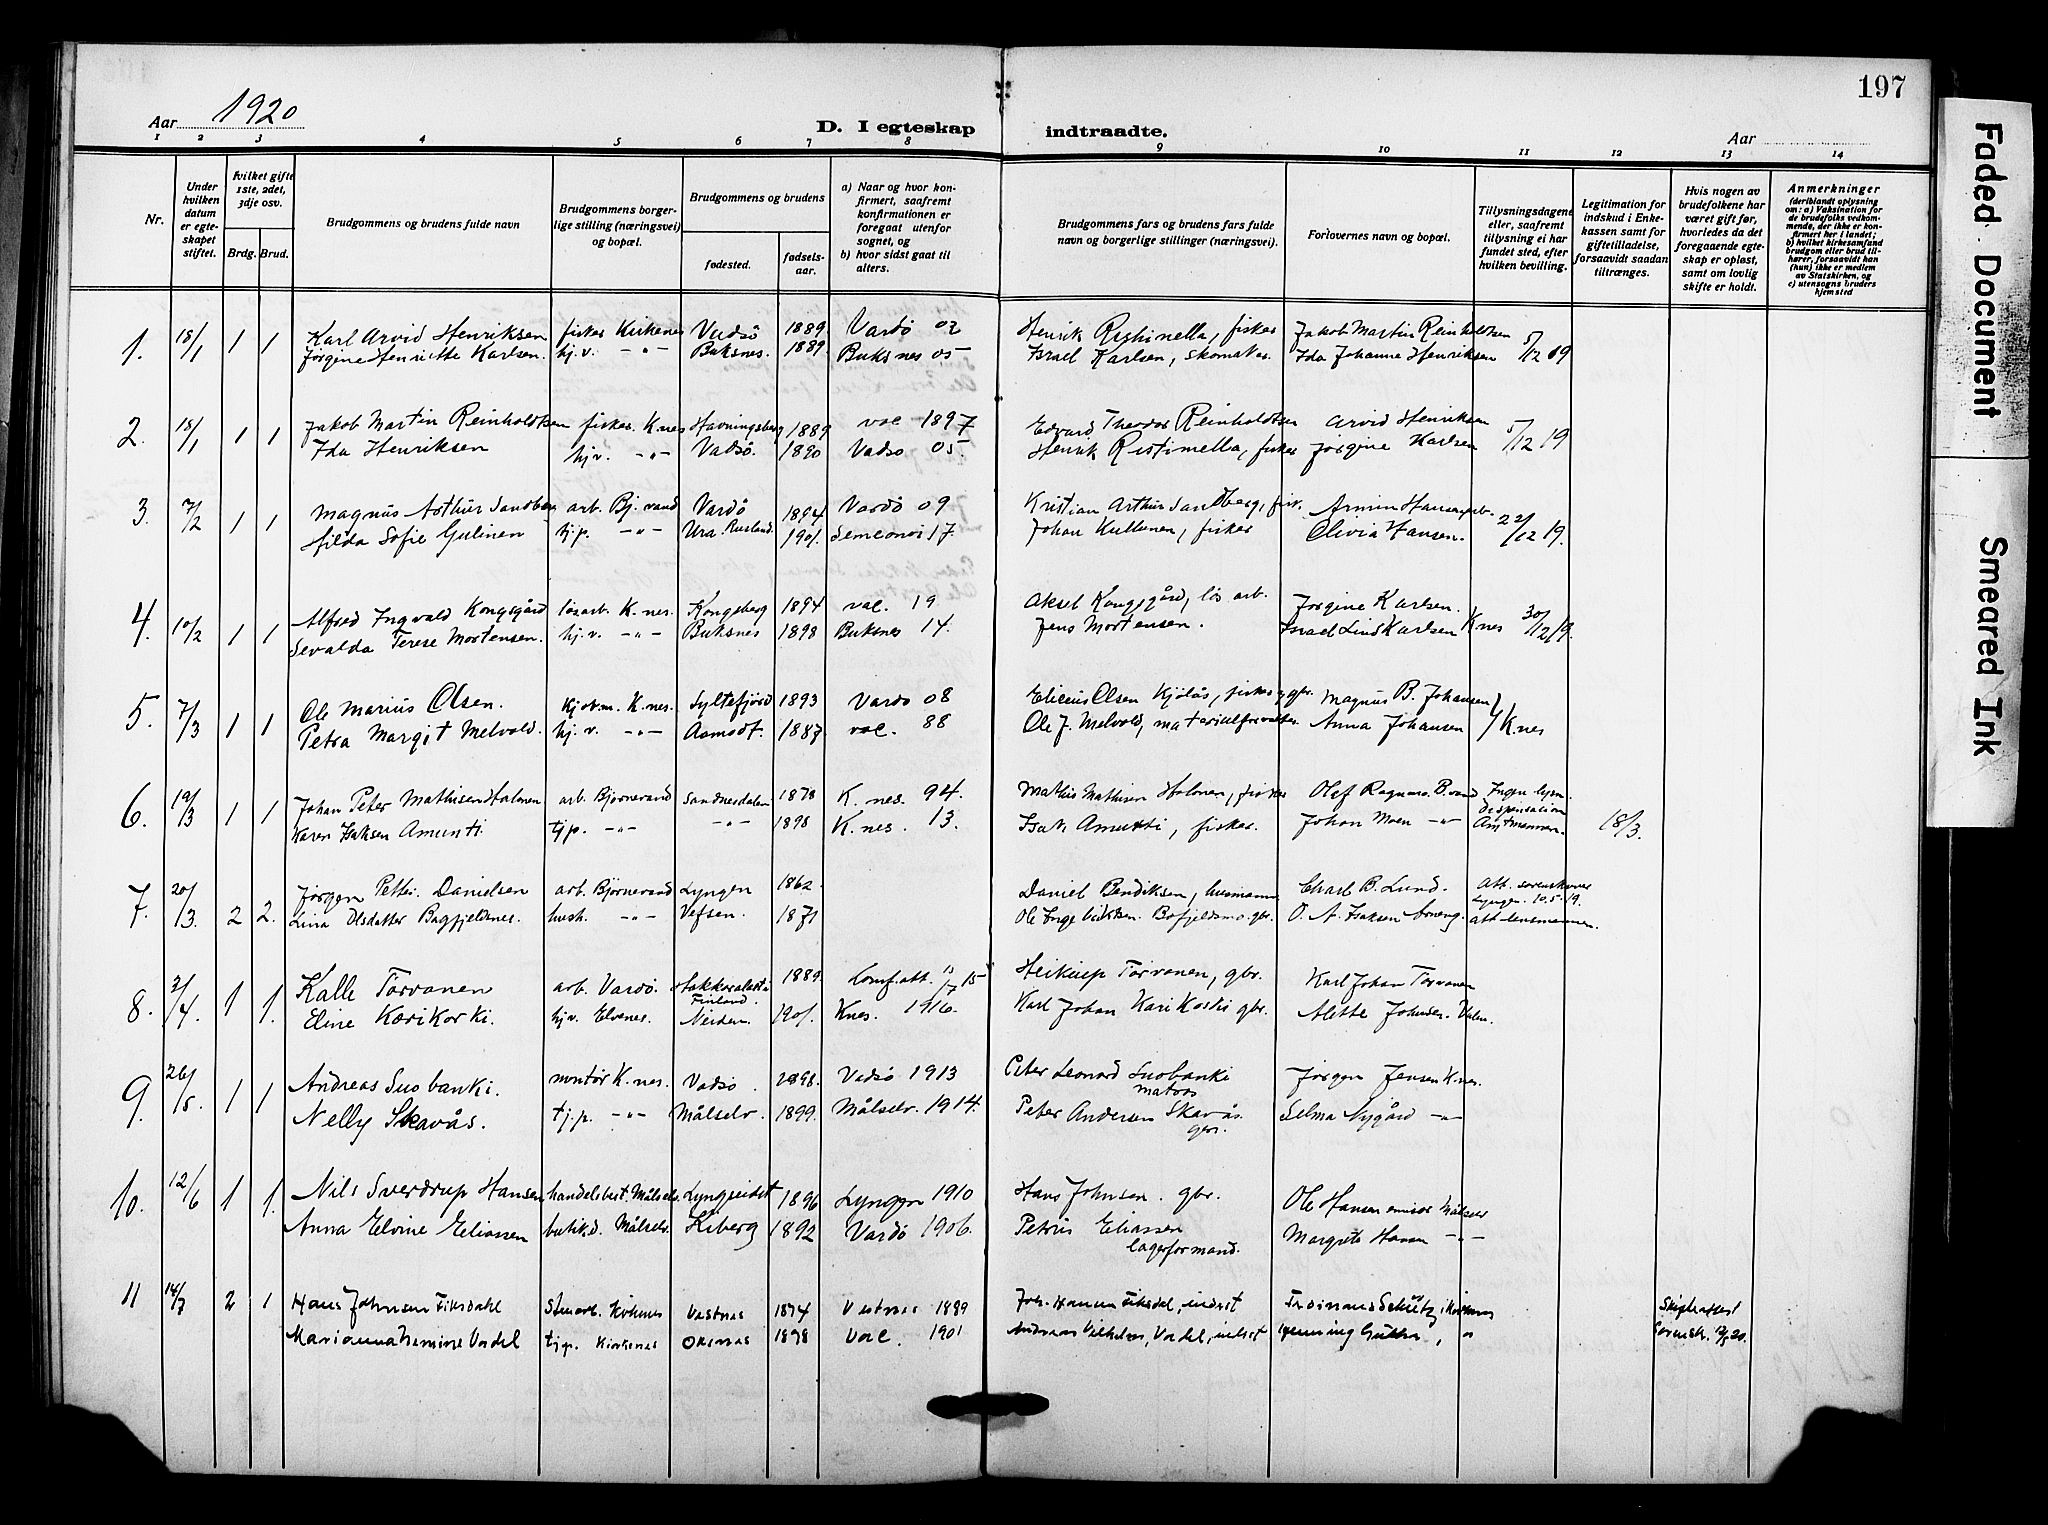 197
Aar 1920
D. I egteskap indtraadte.
Aar
1 2 3 4 5 6 7 8 9 10 11 12 13 14
Nr.
Under hvilken datum er egteskapet stiftet.
Hvilket gifte 1ste, 2det, 3dje osv.
Brdg. Brud.
Brudgommens og brudens fulde navn
Brudgommens borgerlige stilling (næringsvei) og bopæl.
Brudgommens og brudens
fødested.
fødselsaar.
a) Naar og hvor konfirmert, saafremt konfirmationen er foregaat utenfor sognet, og
b) hvor sidst gaat til alters.
Brudgommens fars og brudens fars fulde navn og borgerlige stillinger (næringsvei).
Forlovernes navn og bopæl.
Tillysningsdagene eller, saafremt tillysning ei har fundet sted, efter hvilken bevilling.
Legitimation for indskud i Enkekassen samt for giftetilladelse, forsaavidt saadan tiltrænges.
Hvis nogen av brudefolkene har været gift før, hvorledes da det foregaaende egteskap er opløst, samt om lovlig skifte er holdt.
Anmerkninger (deriblandt oplysning om: a) Vaksination for de brudefolks vedkommende, der ikke er konfirmert her i landet; b) hvilket kirkesamfund brudgom eller brud tilhører, forsaavidt han (hun) ikke er medlem av Statskirken, og c) utensogns bruders hjemsted
1. 18/1 1 1 Karl Arvid Henriksen fisker Kirkenes Vadsö 1889. Vardö 02 Henrik fisker Jakob Martin Reinholdtsen 5/12 19
Jørgine Henriette Karlsen. hj.v. -"- Buksnes. 1889 Buksnes 05 Israel Karlsen, skomaker Ida Johanne Henriksen
2. 18/1 1 1 Jakob Martin Reinholdtsen fisker K.nes Havningsberg 1889 vac 1897 Edvard Theodor Reinholdtsen Arvid Henriksen 5/12 19
Ida Henriksen hj.v. -"- Vadsö. 1890 Vadsö 05. Henrik Ristimella, fisker Jørgine Karlsen
3. 7/2 1 1 Magnus Arthur Sandberg arb. Bj.vand Vardö 1894 Vardö 09 Kristian Arthur Sandberg, fisk. Armin Hansen arb. 22/12 19.
Hilda Sofie Gulinen tj.p. -"- Ura Rusland 1901. 17. Johan Kullunen, fisker Olivia Hansen.
4. 10/2 1 1 Alfred Ingvald Kongsgård løsarb. K.nes. Kongsberg 1894 vac. 19 Aksel Kongsgård, løs arb. Jørgine Karlsen. 30/12 19.
Sevalda Terese Mortensen. hj.v. -"- Buksnes 1898 Buksnes 14. Jens Mortensen. Israel Lind Karlsen K.nes
5. 7/3 1 1 Ole Marius Olsen. K.nes. Syltefjord 1893 Vardö 08 Olsen Kjölås, fisker, gbr. Magnus B. Johansen
Petra Margit Melvold. hj.v. -"- Aamodt. 1887 vac. 88 Ole J. Melvold, materialforvalter Anna Johansen K.nes
6. 19/3 1 1 Johan Peter Mathisen Holmen arb. Bjørnevand Sandnesdalen 1878 K.nes. 94. Mathis Mathisen Holmen, fisker Olaf Ragnar B.vand Ingen lysn. dispensation
Karen Isaksen Amunti. tj.p. -"- -"- 1898 K.nes. 13. Isak Amunti, fisker. Johan Moen -"- Amtmannen. 18/3.
7. 20/3. 2 2. Jørgen Petter Danielsen arb. Bjørnevand Lyngen 1862. Daniel Bendiksen, husmann Charl B. Lund. Att. sorenskriver Lyngen. 10.5.19.
Lina Olsdatter Bagfjeldnes. hush. -"- Vefsen. 1871 gbr. O. A. Isaksen att. lensmannen.
8. 2/4. 1 1. Kalle Törvanen arb. Vardö. Finland. 1889. Konf.att. 15 Törvanen, gbr. Karl Johan Törvanen
Eline Karikoski. hj.v. Elvenes. Neiden 1901. K.nes. 1916. Karl Johan Karikoski gbr. Alette Johnsen
9. 26/5. 1 1 Andreas Suobanki. montör K.nes. Vadsö. 1898. Vadsö 1913 Peter Leonard Suobanki matros Jørgen Jensen K.nes.
Nelly Skavås. tj.p. -"- Målselv. 1899. Målselv. 1914. Peter Andersen Skavås gbr. Selma Nygård -"-
10. 12/6 1 1. Nils Sverdrup Hansen handelsbest. Målselv. Lyngseidet 1896 Lyngen 1910 Hans Johnsen. gbr. Ole Hansen Målselv
Anna Elvine Eliassen butikd. Målselv. Kiberg 1892 Vardö 1906. Petrus Eliassen lagerformand. Margrete Hansen -"-
11 14/7 2 1 Hans Johnsen Fiksdahl Stenarb. Kirkenes Vestnes 1874 Vestnes 1889 Joh. Hansen Fiksdal, inderst Ferdinand Schütz, Kirkenes Skifteattest
Marianna Vardel tj.p. Kirkenes Øksnes 1898 Vac. 1901 Andreas Vilhelm Vardel, inderst Henning " Sorenskr. 20.
Faded Document
Smeared Ink